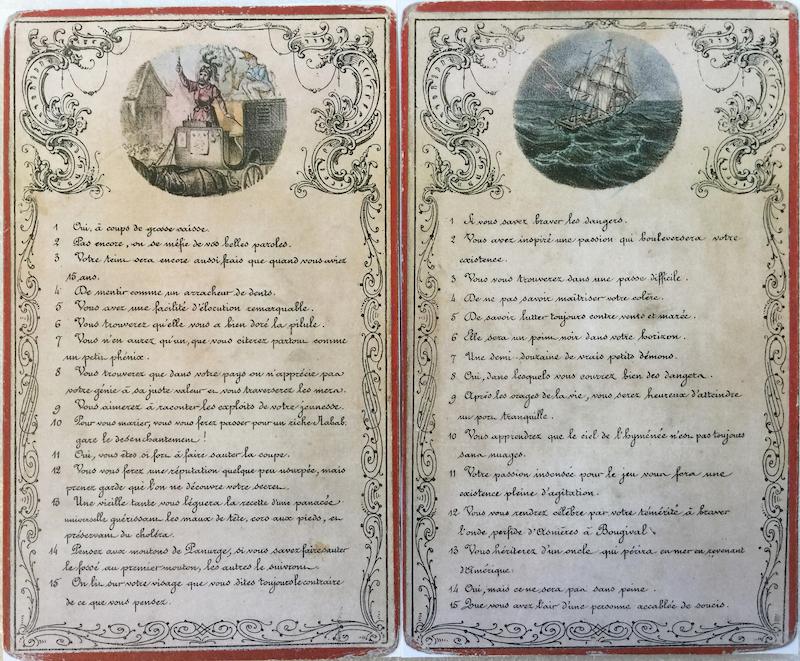 1 Oui, à coups de grosse caisse.
2 Pas encore, on se méfie de vos belles paroles.
3 Votre teint sera encore aussi frais que quand vous aviez
15 ans.
4 De mentir comme un arracheur de dents.
5 Vous avez une facilité d'élocution remarquable.
6 Vous trouverez qu'elle vous a bien doré la pilule.
7 Vous n'en aurez qu'un, que vous citerez partout comme
un petit phénix.
8 Vous trouverez que dans votre pays on n'apprécie pas
votre génie à sa juste valeur et vous traverserez les mers.
9 Vous aimerez à raconter les exploits de votre jeunesse.
10 Pour vous marier, vous vous ferez passer pour un riche Nabab,
gare le desenchantement !
11 Oui, vous êtes si fort à faire sauter la coupe.
12 Vous vous ferez une réputation quelque peu usurpée, mais
prenez garde que l'on ne découvre votre secret.
13 Une vieille tante vous léguera la recette d'une panacée
universelle guérissant les maux de tête, cors aux pieds, et
préservant du choléra.
14 Pensez aux moutons de Panurge, si vous savez faire sauter
le fossé au premier mouton, les autres le suivront.
15 On lit sur votre visage que vous dites toujours le contraire
de ce que vous pensez.
1 Si vous savez braver les dangers.
2 Vous avez inspiré une passion qui bouleversera votre
existence.
3 Vous vous trouverez dans une passe difficile.
4 De ne pas savoir maîtriser votre colère.
5 De savoir lutter toujours contre vents et marée.
6 Elle sera un point noir dans votre horizon.
7 Une demi-douzaine de vrais petits démons.
8 Oui, dans lesquels vous courrez bien des dangers.
9 Après les orages de la vie, vous serez heureux d'atteindre
un port tranquille.
10 Vous apprendrez que le ciel de l'hyménée n'est pas toujours
sans nuages.
11 Votre passion insensée pour le jeu vous fera une
existence pleine d'agitation.
12 Vous vous rendrez célèbre par votre témérité à braver
l'onde perfide d'Asnières à Bougival
13 Vous hériterez d'un oncle qui périra en mer en revenant
d'Amérique.
14 Oui, mais ce ne sera pas sans peine.
15 Que vous avez l'air d'une personne accablée de soucis.